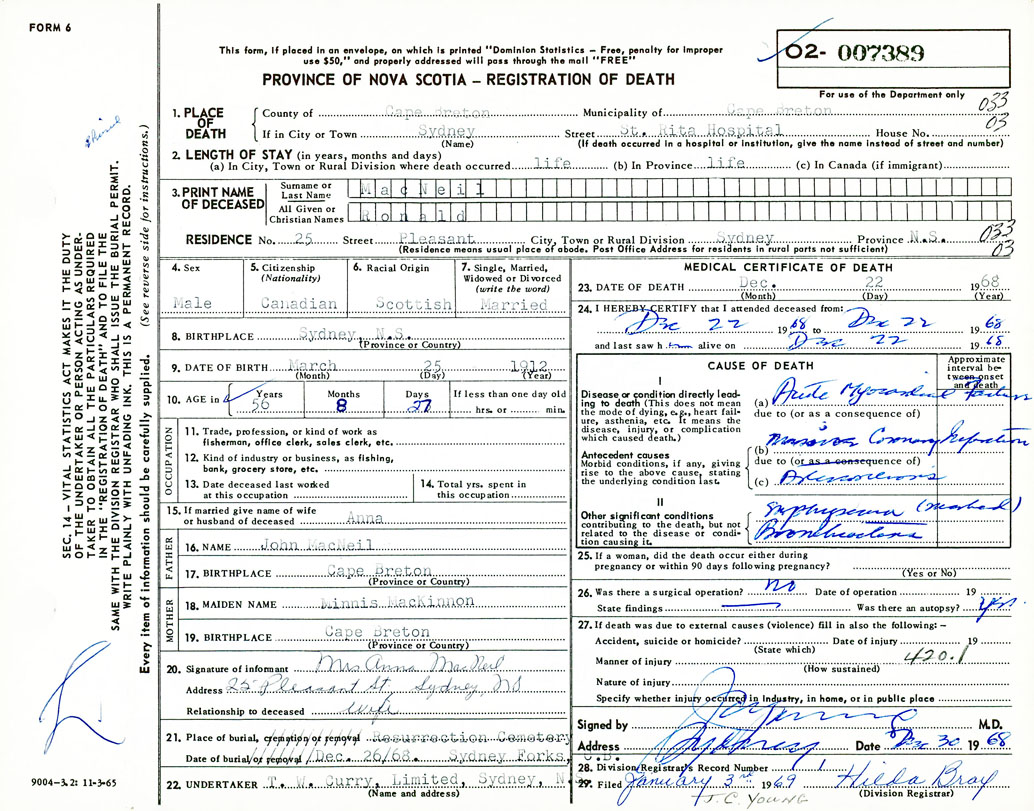 FORM 6
This form, if placed in an envelope, on which is printed "Dominion Statistics – Free, penalty for improper
use $50," and properly addressed will pass through the mail "FREE"
PROVINCE OF NOVA SCOTIA – REGISTRATION OF DEATH
02- 007389
For use of the Department only
033
03
1. PLACE OF DEATH
County of Cape Breton Municipality of Cape Breton
If in City or Town Sydney Street St. Rita Hospital House No.
(Name) (If death occurred in a hospital or institution, give the name instead of street and number)
2. LENGTH OF STAY (in years, months and days)
(a) In City, Town or Rural Division where death occurred life (b) In Province life (c) In Canada (if immigrant)
3. PRINT NAME OF DECEASED
Surname or Last Name MacNeil
All Given or Christian Names Ronald
RESIDENCE No. 25 Street Pleasant City, Town or Rural Division Sydney Province N.S.
033
03
(Residence means usual place of abode. Post Office Address for residents in rural parts not sufficient)
4. Sex
Male
5. Citizenship
(Nationality)
Canadian
6. Racial Origin
Scottish
7. Single, Married,
Widowed or Divorced
(write the word)
Married
8. BIRTHPLACE Sydney, N.S.
(Province or Country)
9. DATE OF BIRTH March 25 1912
(Month) (Day) (Year)
10. AGE in Years Months Days If less than one day old
56 8 27 hrs. or min.
OCCUPATION
11. Trade, profession, or kind of work as
fisherman, office clerk, sales clerk, etc.
12. Kind of industry or business, as fishing,
bank, grocery store, etc.
13. Date deceased last worked
at this occupation
14. Total yrs. spent in
this occupation
15. If married give name of wife
or husband of deceased Anna
FATHER
16. NAME John MacNeil
17. BIRTHPLACE Cape Breton
(Province or Country)
MOTHER
18. MAIDEN NAME Minnis MacKinnon
19. BIRTHPLACE Cape Breton
(Province or Country)
20. Signature of informant Mrs Anna MacNeil
Address 25 Pleasant St, Sydney, NS
Relationship to deceased wife
21. Place of burial, cremation or removal Resurrection Cemetery
Date of burial or removal Dec. 26/68. Sydney Forks, C.B.
22. UNDERTAKER T. W. Curry, Limited, Sydney, N.
(Name and address)
MEDICAL CERTIFICATE OF DEATH
23. DATE OF DEATH Dec. 22 1968
(Month) (Day) (Year)
24. I HEREBY CERTIFY that I attended deceased from:
Dec 22 1968 to Dec 22 1968
and last saw him alive on Dec 22 1968
CAUSE OF DEATH
Approximate
interval be-
tween onset
and death
I
Disease or condition directly lead-
ing to death (This does not mean
the mode of dying, e.g., heart fail-
ure, asthenia, etc. It means the
disease, injury, or complication
which caused death.)
(a) Acute Myocardial Failure
due to (or as a consequence of)
Antecedent causes
Morbid conditions, if any, giving
rise to the above cause, stating
the underlying condition last.
(b) Massive Coronary Infarction
due to (or as a consequence of)
(c) Arteriosclerosis
II
Other significant conditions
contributing to the death, but not
related to the disease or condi-
tion causing it.
Emphysema (marked)
Bronchiectasis
25. If a woman, did the death occur either during
pregnancy or within 90 days following pregnancy?
(Yes or No)
26. Was there a surgical operation? No Date of operation 19
State findings Was there an autopsy? Yes.
27. If death was due to external causes (violence) fill in also the following: –
Accident, suicide or homicide? Date of injury 19
(State which)
Manner of injury 420.1
(How sustained)
Nature of injury
Specify whether injury occurred in industry, in home, or in public place
Signed by M.D.
Address Sydney Date Dec 30 1968
28. Division Registrar's Record Number 1
29. Filed January 3rd 1969 Hilda Bray
(Division Registrar)
J.C. YOUNG
SEC. 14 – VITAL STATISTICS ACT MAKES IT THE DUTY
OF THE UNDERTAKER OR PERSON ACTING AS UNDER-
TAKER TO OBTAIN ALL THE PARTICULARS REQUIRED
IN THE "REGISTRATION OF DEATH" AND TO FILE THE
SAME WITH THE DIVISION REGISTRAR WHO SHALL ISSUE THE BURIAL PERMIT.
WRITE PLAINLY WITH UNFADING INK. THIS IS A PERMANENT RECORD.
Every item of information should be carefully supplied. (See reverse side for instructions.)
9004–3.2: 11-3-65